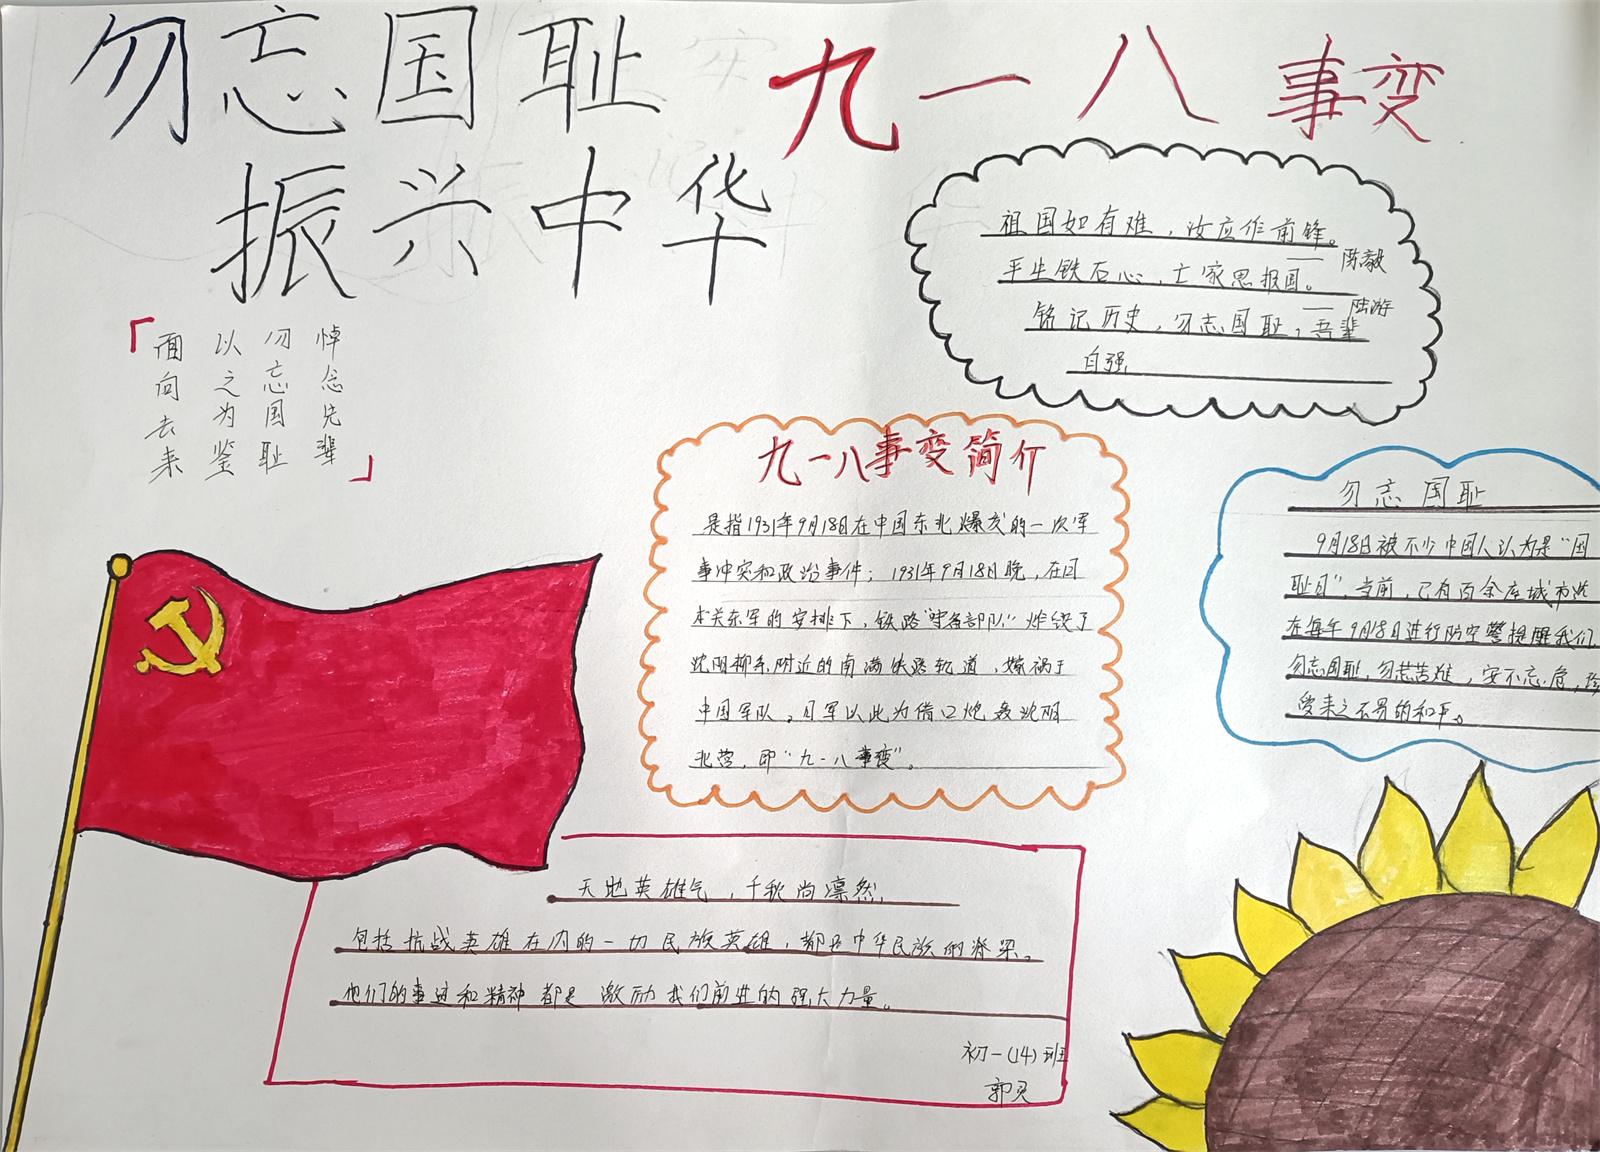 勿忘国耻
振兴中华
九一八事变
祖国如有难，汝应作前锋。
——陈毅
平生铁石心，亡家思报国。
——陆游
铭记历史，勿忘国耻，吾辈
自强
「悼念先辈
勿忘国耻
以之为鉴
面向去来」
九一八事变简介
是指1931年9月18日在中国东北爆发的一次军
事冲突和政治事件；1931年9月18日晚，在日
本关东军的安排下，铁路"守备部队"炸毁了
沈阳柳条附近的南满铁路轨道，嫁祸于
中国军队。日军以此为借口炮轰沈阳
北营，即"九·一八事变"。
勿忘国耻
9月18日被不少中国人认为是"国
耻日"当前，已有百余座城市选
在每年9月18日进行防空警提醒我们
勿忘国耻，勿忘苦难，安不忘危，珍
爱来之不易的和平。
天地英雄气，千秋尚凛然，
包括抗战英雄在内的一切民族英雄，都是中华民族的脊梁。
他们的事迹和精神都是激励我们前进的强大力量。
初一(14)班
郭灵